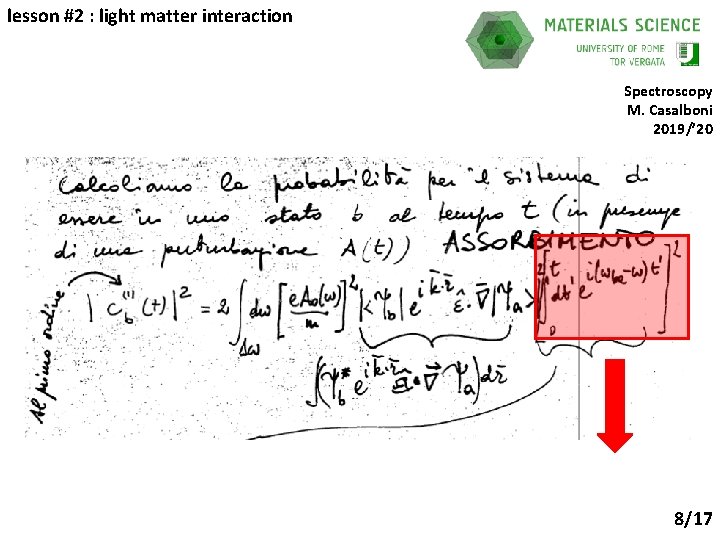 lesson #2 : light matter interaction
MATERIALS SCIENCE
UNIVERSITY OF ROME
TOR VERGATA
Spectroscopy
M. Casalboni
2019/'20
Calcoliamo la probabilità per il sistema di
essere in uno stato b al tempo t (in presenza
di una perturbazione A(t)) ASSORBIMENTO
Al primo ordine
|C_b^(1)(t)|² = 2 ∫_Δω dω [eA₀(ω)/m]² |<ψ_b| e^{i k̄·r̄} ε̂·∇̄ |ψ_a>|² [∫₀^t dt' e^{i(ω_ba-ω)t'}]²
∫(ψ_b* e^{i k̄·r̄} ·∇̄ ψ_a) dr̄
8/17